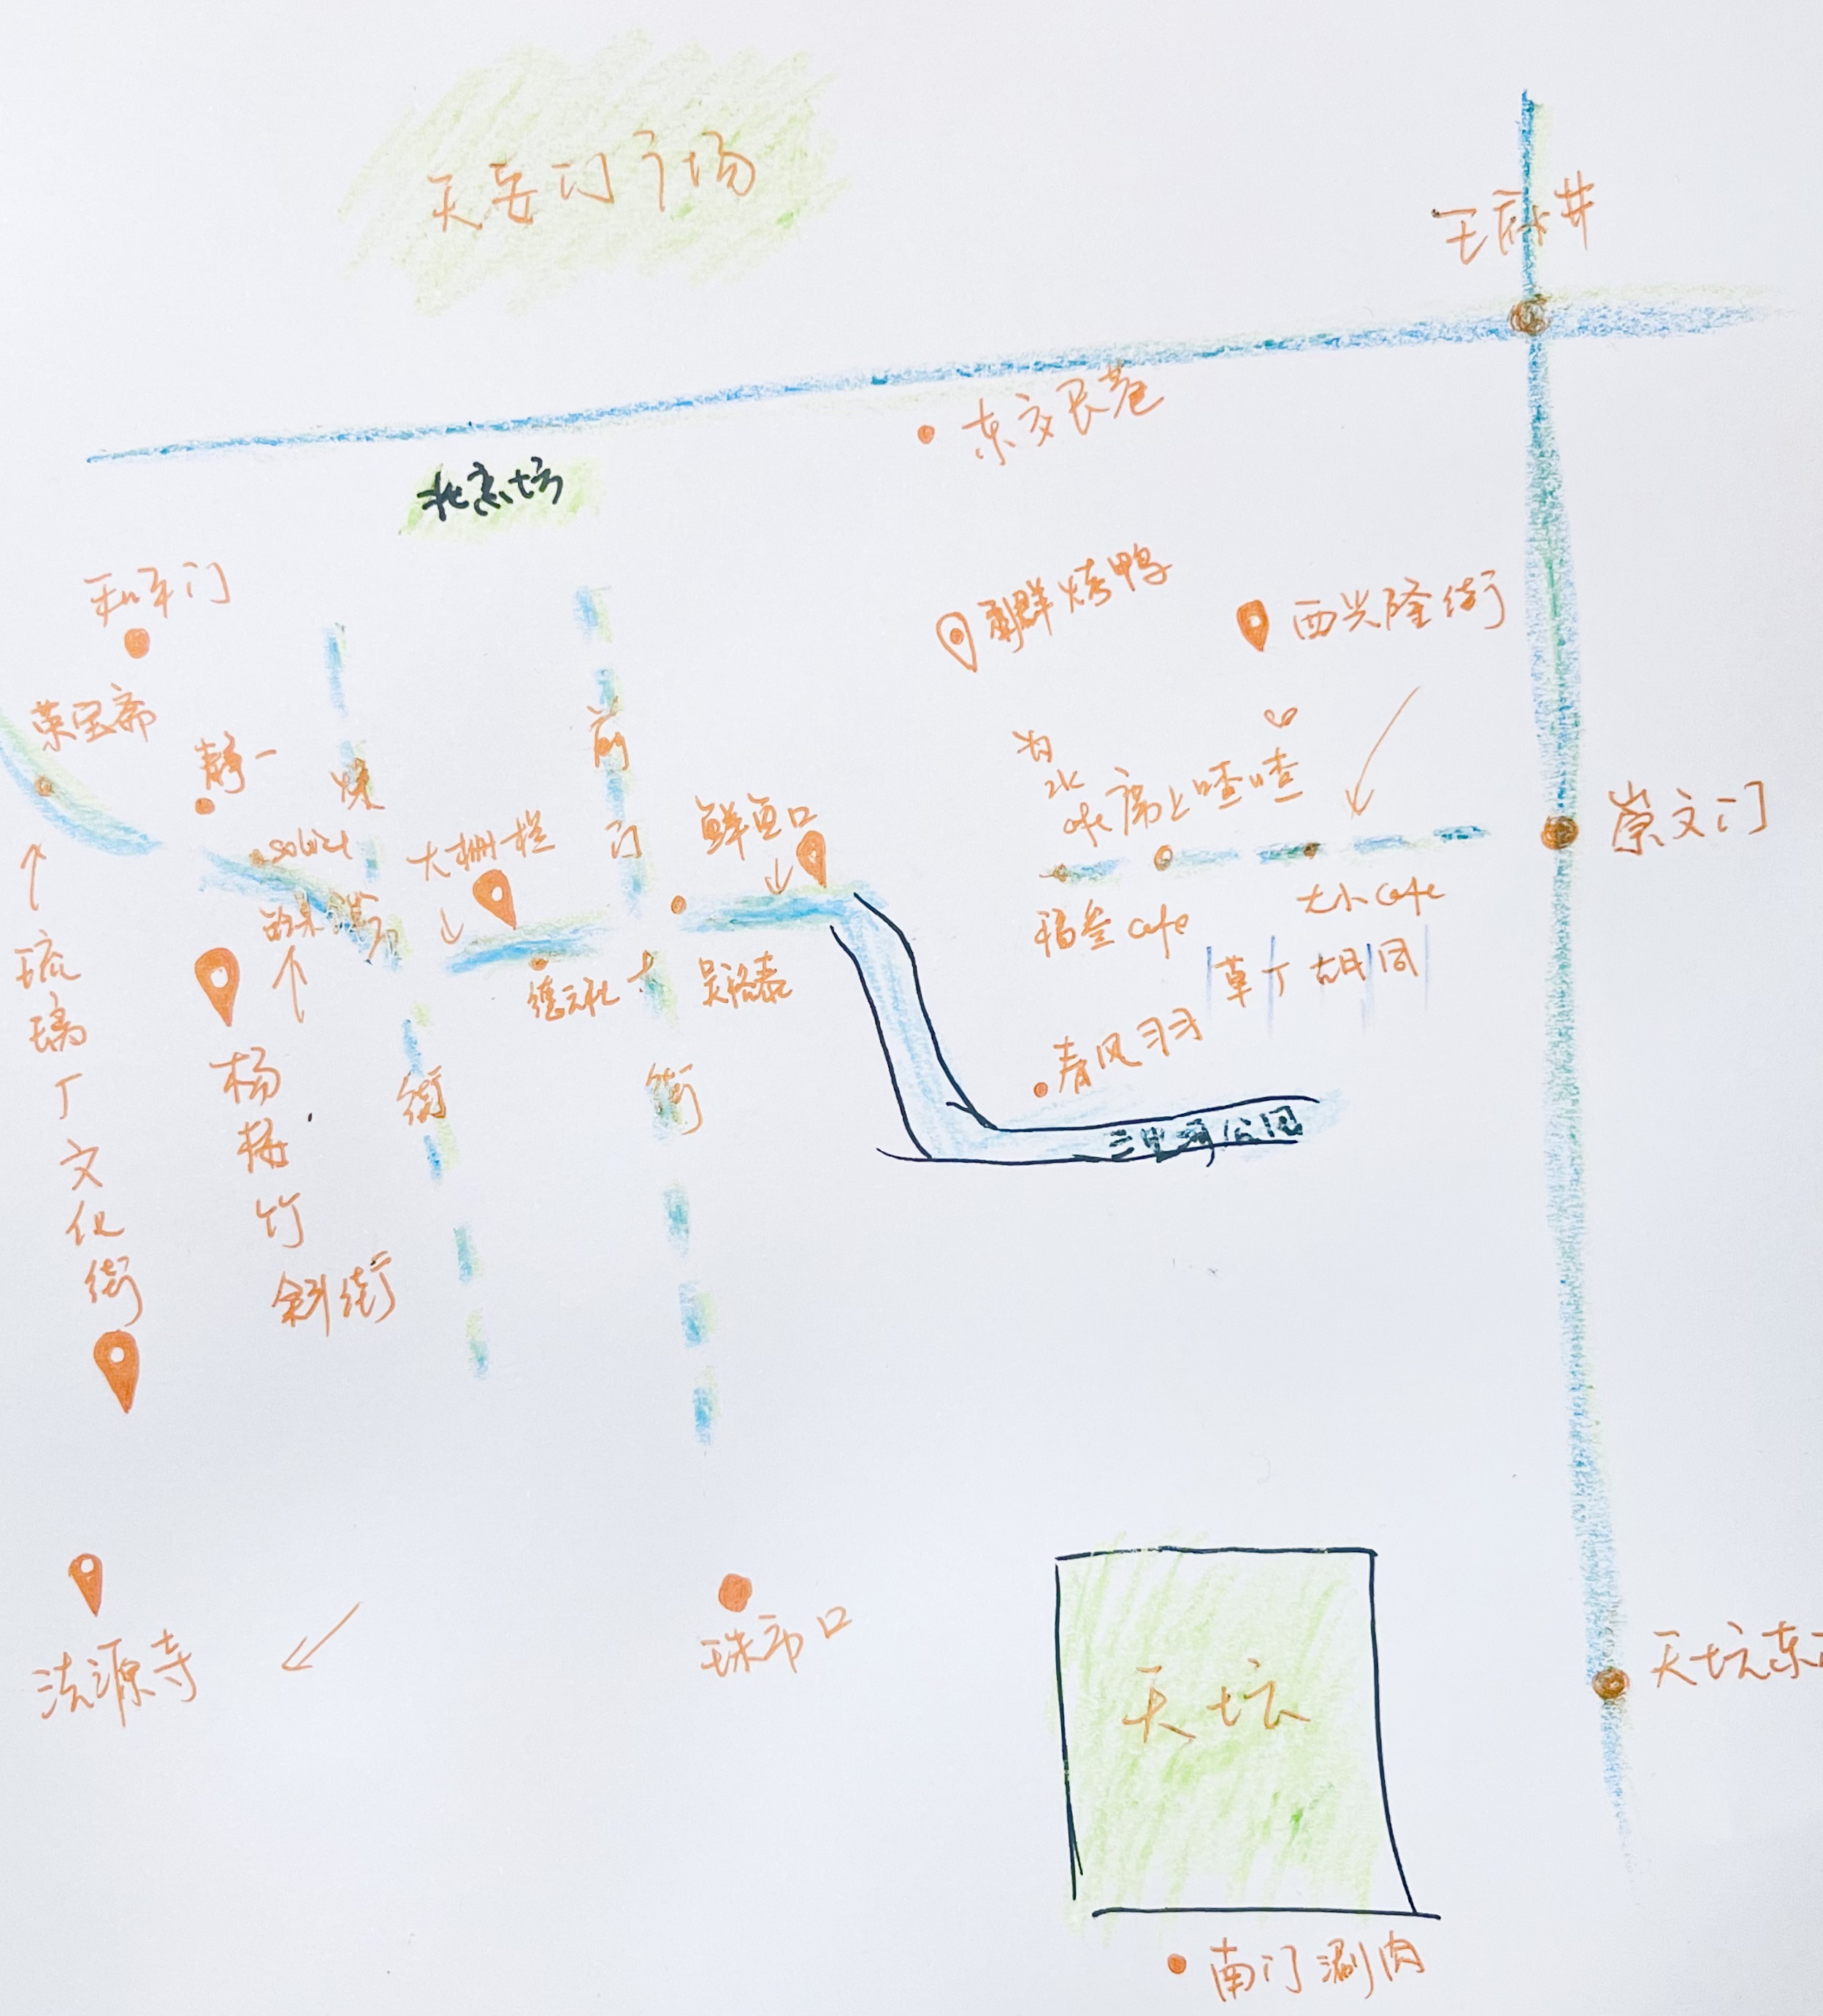 天安门广场
王府井
东交民巷
北京坊
和平门
利群烤鸭
西兴隆街
荣宝斋
静一
煤市街
前门大街
席上喳喳
鲜鱼口
大栅栏
solixi
崇文门
福叁 cafe
大小 cafe
草厂胡同
德云社
吴裕泰
琉璃厂文化街
杨梅竹斜街
春风习习
三里河公园
法源寺
珠市口
天坛
天坛东
南门涮肉